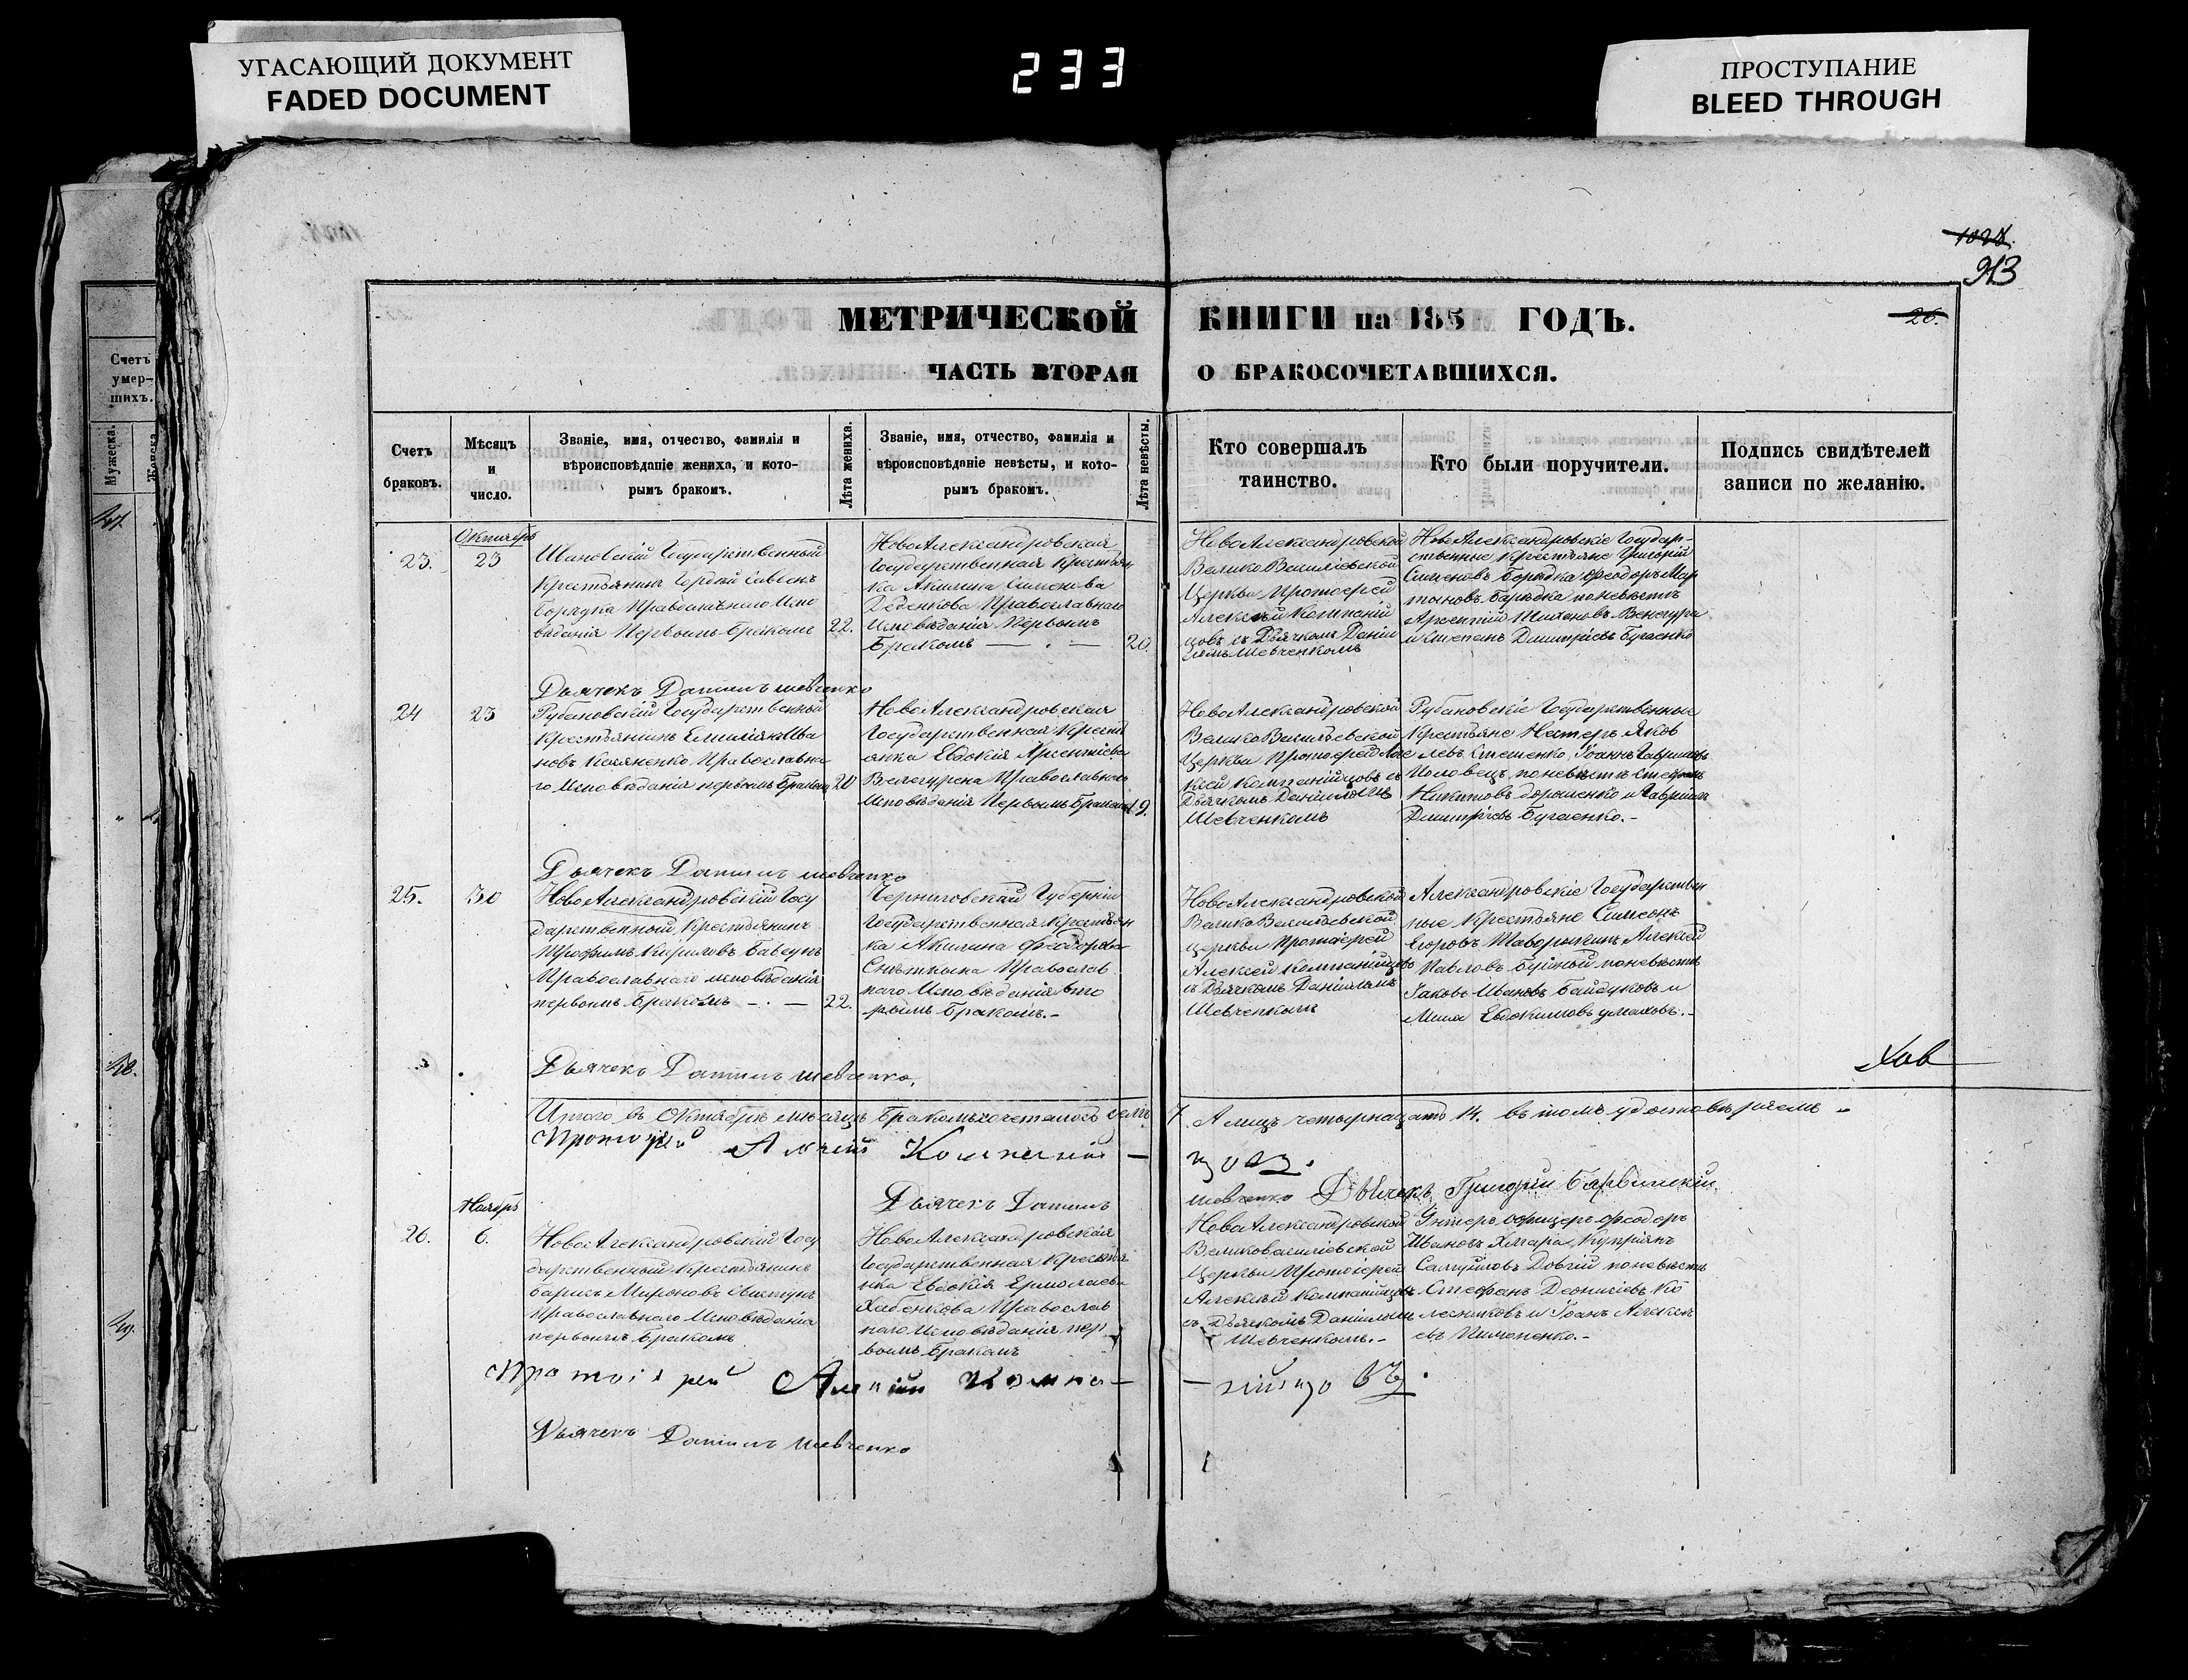 УГАСАЮЩИЙ ДОКУМЕНТ
FADED DOCUMENT
233
ПРОСТУПАНИЕ
BLEED THROUGH
1028.
913
26.
МЕТРИЧЕСКОЙ КНИГИ на 185 ГОДЪ.
ЧАСТЬ ВТОРАЯ О БРАКОСОЧЕТАВШИХСЯ.
Счетъ
умер-
шихъ.
Мужеска.
Женска
47.
48.
49.
Счетъ
браковъ.
Мѣсяцъ
и
число.
Званіе, имя, отчество, фамилія и
вѣроисповѣданіе жениха, и кото-
рымъ бракомъ.
Лѣта жениха.
Званіе, имя, отчество, фамилія и
вѣроисповѣданіе невѣсты, и кото-
рымъ бракомъ.
Лѣта невѣсты.
Кто совершалъ
таинство.
Кто были поручители.
Подпись свидѣтелей
записи по желанію.
23.
Октября
23
Государственный
Крестьянинъ Гордій Савинъ
Бородка Православнаго Испо
вѣданія Первымъ Бракомъ
22.
НовоАлександровская
Государственная Крестьян
ка Акилина Симонова
Деденкова Православнаго
Исповѣданія Первымъ
Бракомъ — . —
20.
НовоАлександровской
ВеликоВасиліевской
Церкви Протоіерей
Алексѣй Компаній
цовъ съ Дьячкомъ Даніи
ломъ Шевченкомъ
НовоАлександровскіе Государ-
ственные Крестьяне Григорій
Сименовъ Бородка Феодоръ Мар
тыновъ Бородка по невѣстѣ
и Степанъ Димитріевъ Бугаенко
Дьячекъ Даниилъ Шевченко
24
23
Рубановскій Государственный
Крестьянинъ Емиліянъ Ива
новъ Касяненко Православна
го Исповѣданія первымъ Бракомъ
20
НовоАлександровская
Государственная Крестья
янка Евдокія Арсентіева
Православнаго
Исповѣданія Первымъ Бракомъ
19.
НовоАлександровской
ВеликоВасильевской
Церкви Протоіерей Але
ксѣй Компанійцовъ съ
Дьячкомъ Даніиломъ
Шевченкомъ
Рубановскіе Государственные
Крестьяне Нестеръ Яков
левъ Стешенко, Іоаннъ Гавриловъ
Половецъ, по невѣстѣ Стефанъ
Никитовъ Дорошенко и Гавріилъ
Димитріевъ Бугаенко.-
Дьячекъ Даниилъ Шевченко
25.
30
НовоАлександровскій Госу
дарственный Крестьянинъ
Трофимъ Кириловъ Бавсунъ
Православнаго исповѣданія
первымъ Бракомъ -. —
22.
Черниговской Губерніи
Государственная Крестьян
ка Акилина Феодорова
Православ
наго Исповѣданія вто
рымъ Бракомъ.-
НовоАлександровской
ВеликоВасильевской
Церкви Протоіерей
Алексѣй Компанійцовъ
съ Дьячкомъ Даніиломъ
Шевченкомъ
Александровскіе Государствен
ные Крестьяне Симеонъ
Егоровъ Алексѣй
Павловъ Буйный по невѣстѣ
Іаковъ Ивановъ Байдуковъ и
Евдокимовъ
Дьячекъ Даниилъ Шевченко.
Хов
Итого въ Октябрѣ мѣсяцѣ Бракомъ сочеталось семь 7. А лицъ четырнадцать 14. въ томъ удостовѣряемъ
Протоіерей Алексѣй Компаній — цовъ.
Дьячекъ Даниилъ Шевченко Дьячекъ Григорій Барвинскій
26.
Ноября
6.
НовоАлександровскій Госу
дарственный Крестьянинъ
Борисъ Мироновъ Свистунъ
Православнаго Исповѣданія
первымъ Бракомъ
НовоАлександровская
Государственная Крестья
нка Евдокія Ермолаева
Хабенкова Православ
наго Исповѣданія пер
вымъ Бракомъ
НовоАлександровской
Великовасиліевской
Церкви Протоіерей
Алексѣй Компанійцовъ
съ Дьячкомъ Даніиломъ
Шевченкомъ.-
Унтеръ офицеръ Феодоръ
Ивановъ Хмара, Купріянъ
Самуиловъ Довгій по невѣстѣ
Стефанъ Деонисіевъ Ко
лесниковъ и Іоанъ Алексѣ
евъ Пилипенко.-
Протоіерей Алексій Компа— —нійцовъ.
Дьячекъ Даниилъ Шевченко